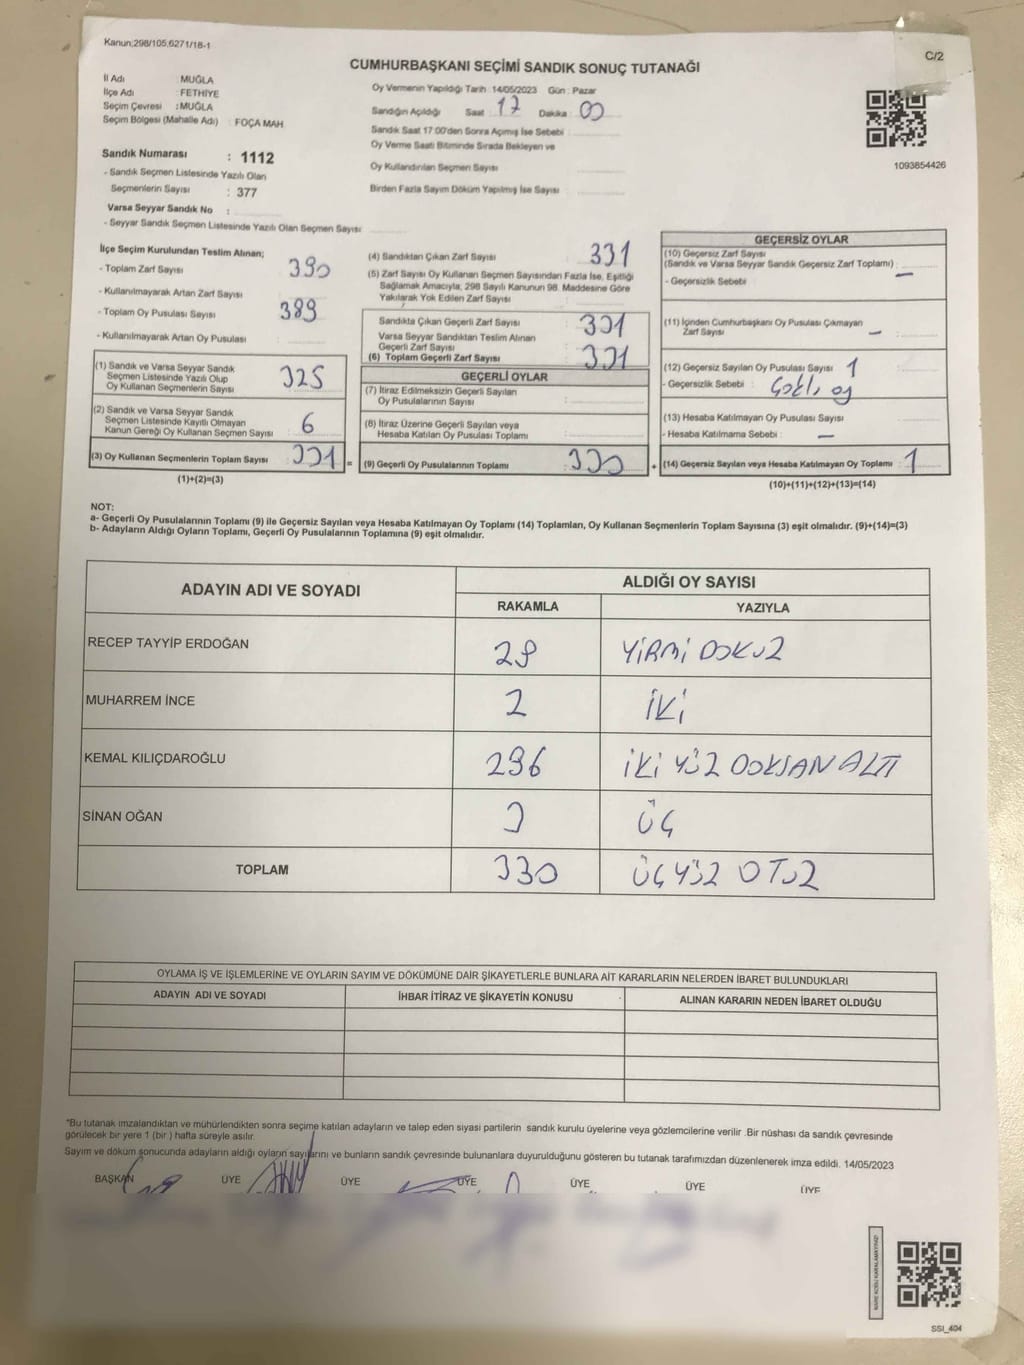 Kanun;298/105,6271/18-1
C/2
CUMHURBAŞKANI SEÇİMİ SANDIK SONUÇ TUTANAĞI
İl Adı : MUĞLA
İlçe Adı : FETHİYE
Seçim Çevresi : MUĞLA
Seçim Bölgesi (Mahalle Adı) : FOÇA MAH.
Oy Vermenin Yapıldığı Tarih : 14/05/2023 Gün : Pazar
Sandığın Açıldığı Saat : 17 Dakika : 00
Sandık Saat 17:00'den Sonra Açımış İse Sebebi :
Oy Verme Saati Bitiminde Sırada Bekleyen ve
Oy Kullandırılan Seçmen Sayısı
Birden Fazla Sayım Döküm Yapılmış İse Sayısı
1093854426
Sandık Numarası : 1112
- Sandık Seçmen Listesinde Yazılı Olan
Seçmenlerin Sayısı : 377
Varsa Seyyar Sandık No :
- Seyyar Sandık Seçmen Listesinde Yazılı Olan Seçmen Sayısı
İlçe Seçim Kurulundan Teslim Alınan;
- Toplam Zarf Sayısı 390
- Kullanılmayarak Artan Zarf Sayısı
- Toplam Oy Pusulası Sayısı 389
- Kullanılmayarak Artan Oy Pusulası
(1) Sandık ve Varsa Seyyar Sandık
Seçmen Listesinde Yazılı Olup
Oy Kullanan Seçmenlerin Sayısı 325
(2) Sandık ve Varsa Seyyar Sandık
Seçmen Listesinde Kayıtlı Olmayan
Kanun Gereği Oy Kullanan Seçmen Sayısı 6
(3) Oy Kullanan Seçmenlerin Toplam Sayısı 331 =
(1)+(2)=(3)
(4) Sandıktan Çıkan Zarf Sayısı 331
(5) Zarf Sayısı Oy Kullanan Seçmen Sayısından Fazla İse, Eşitliği
Sağlamak Amacıyla, 298 Sayılı Kanunun 98. Maddesine Göre
Yakılarak Yok Edilen Zarf Sayısı :
Sandıkta Çıkan Geçerli Zarf Sayısı 331
Varsa Seyyar Sandıktan Teslim Alınan
Geçerli Zarf Sayısı
(6) Toplam Geçerli Zarf Sayısı 331
GEÇERLİ OYLAR
(7) İtiraz Edilmeksizin Geçerli Sayılan
Oy Pusulalarının Sayısı
(8) İtiraz Üzerine Geçerli Sayılan veya
Hesaba Katılan Oy Pusulası Toplamı
(9) Geçerli Oy Pusulalarının Toplamı 330 +
GEÇERSİZ OYLAR
(10) Geçersiz Zarf Sayısı
(Sandık ve Varsa Seyyar Sandık Geçersiz Zarf Toplamı) :
- Geçersizlik Sebebi —
(11) İçinden Cumhurbaşkanı Oy Pusulası Çıkmayan
Zarf Sayısı —
(12) Geçersiz Sayılan Oy Pusulası Sayısı 1
- Geçersizlik Sebebi : Çoklu oy
(13) Hesaba Katılmayan Oy Pusulası Sayısı
- Hesaba Katılmama Sebebi : —
(14) Geçersiz Sayılan veya Hesaba Katılmayan Oy Toplamı 1
(10)+(11)+(12)+(13)=(14)
NOT:
a- Geçerli Oy Pusulalarının Toplamı (9) ile Geçersiz Sayılan veya Hesaba Katılmayan Oy Toplamı (14) Toplamları, Oy Kullanan Seçmenlerin Toplam Sayısına (3) eşit olmalıdır. (9)+(14)=(3)
b- Adayların Aldığı Oyların Toplamı, Geçerli Oy Pusulalarının Toplamına (9) eşit olmalıdır.
ADAYIN ADI VE SOYADI ALDIĞI OY SAYISI
RAKAMLA YAZIYLA
RECEP TAYYİP ERDOĞAN 29 YİRMİ DOKUZ
MUHARREM İNCE 2 İKİ
KEMAL KILIÇDAROĞLU 296 İKİ YÜZ DOKSAN ALTI
SİNAN OĞAN 3 ÜÇ
TOPLAM 330 ÜÇ YÜZ OTUZ
OYLAMA İŞ VE İŞLEMLERİNE VE OYLARIN SAYIM VE DÖKÜMÜNE DAİR ŞİKAYETLERLE BUNLARA AİT KARARLARIN NELERDEN İBARET BULUNDUKLARI
ADAYIN ADI VE SOYADI İHBAR İTİRAZ VE ŞİKAYETİN KONUSU ALINAN KARARIN NEDEN İBARET OLDUĞU
"Bu tutanak imzalandıktan ve mühürlendikten sonra seçime katılan adayların ve talep eden siyasi partilerin sandık kurulu üyelerine veya gözlemcilerine verilir .Bir nüshası da sandık çevresinde
görülecek bir yere 1 (bir ) hafta süreyle asılır.
Sayım ve döküm sonucunda adayların aldığı oyların sayılarını ve bunların sandık çevresinde bulunanlara duyurulduğunu gösteren bu tutanak tarafımızdan düzenlenerek imza edildi. 14/05/2023
BAŞKAN ÜYE ÜYE ÜYE ÜYE ÜYE ÜYE
SSI_404